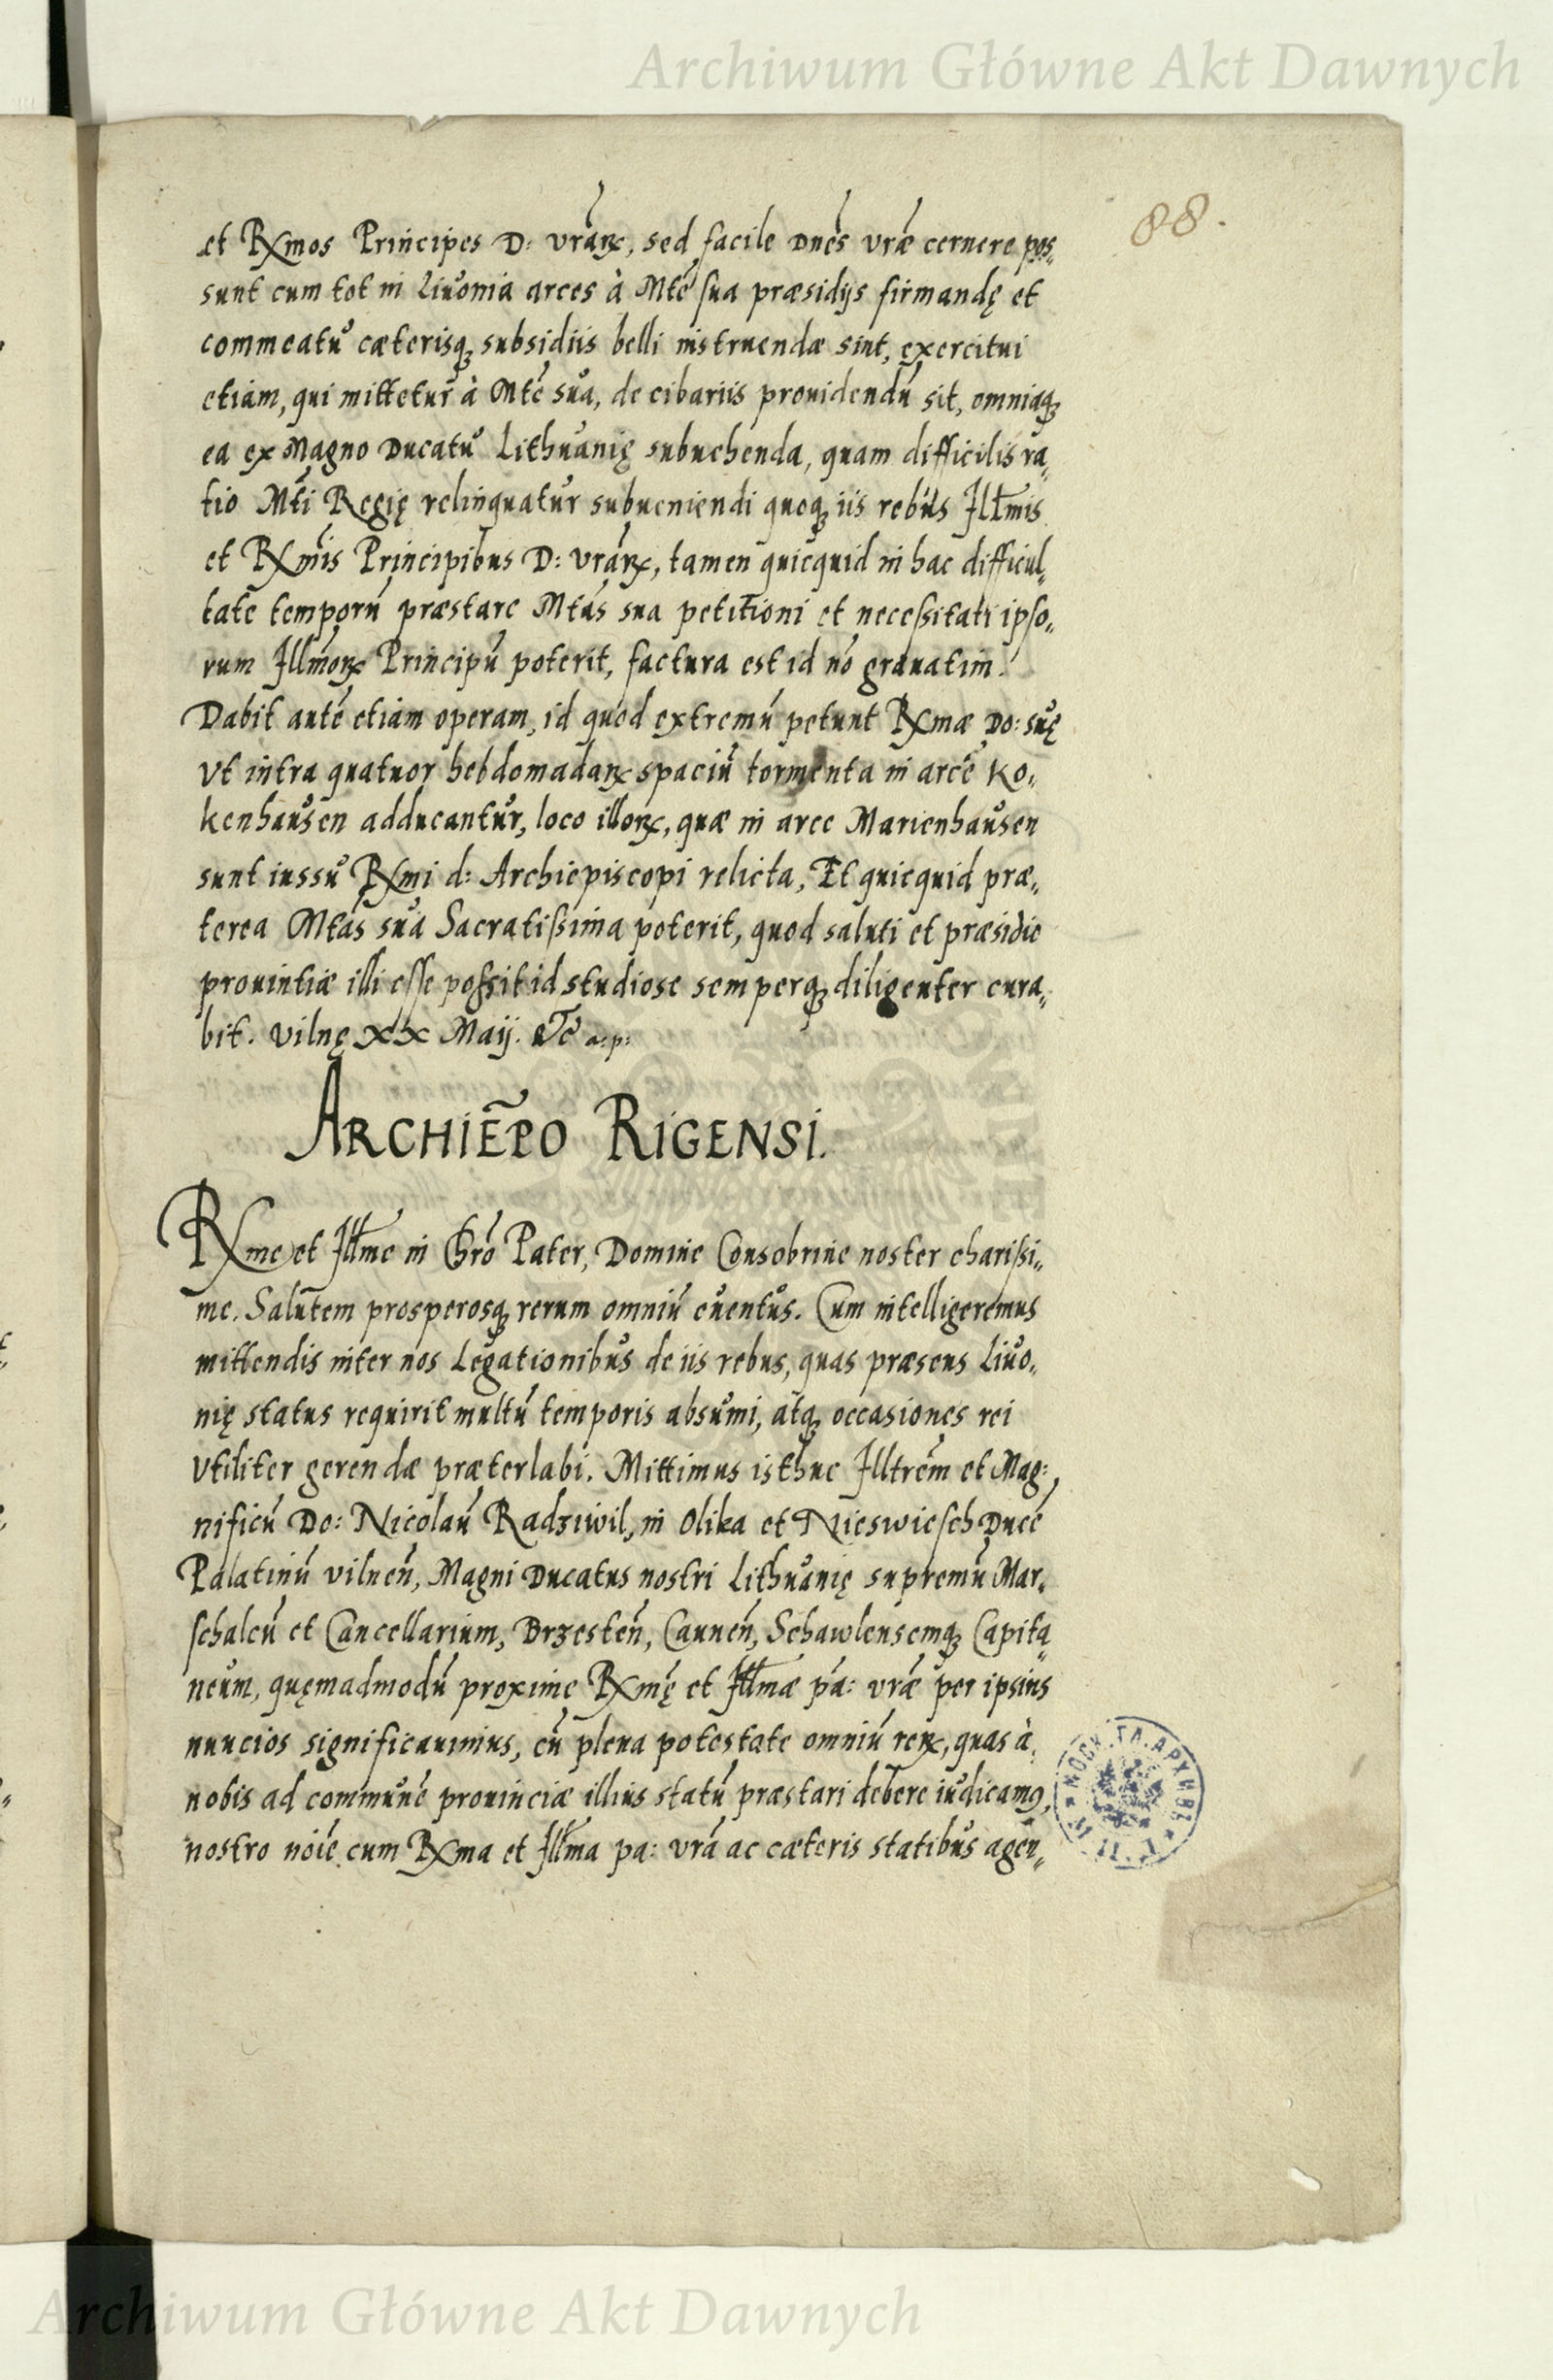 Archiwum Główne Akt Dawnych
88.
et Rxmos Principes D: vrãꝝ, sed facile Dnẽs vræ cernere pos„
sunt cum tot in Liuonia arces à Mtẽ sua præsidijs firmandę et
commeatu cæterisq; subsidiis belli instruendæ sint, exercitui
etiam, qui mittetur à Mtẽ sua, de cibariis prouidendũ sit, omniaq;
ea ex Magno Ducatu Lithuanię subuehenda, quam difficilis ra„
tio Mti Regię relinquatur subueniendi quoq; iis rebus Illmis
et Rxmis Principibus D: vrãꝝ, tamen quicquid in hac difficul„
tate temporũ præstare Mtas sua petitioni et necessitati ipso„
rum Illmoꝝ Principũ poterit, factura est id nõ grauatim.
Dabit autẽ etiam operam, id quod extremũ petunt Rxmæ Do: suę
vt intra quatuor hebdomadaꝝ spaciũ tormenta in arcẽ Ko„
kenhausen adducantur, loco illoꝝ, quæ in arce Marienhausen
sunt iussu Rxmi d: Archiepiscopi relicta, Et quicquid præ„
terea Mtas sua Sacratissima poterit, quod saluti et præsidio
prouintiæ illi esse possit id studiose semperq; diligenter cura„
bit. Vilnę XX Maij. etc̃ a: p:
ARCHIEPO RIGENSI.
Rxme et Illme in Chrõ Pater, Domine Consobrine noster charissi„
me. Salutem prosperosq; rerum omniũ euentus. Cum intelligeremus
mittendis inter nos Legationibus de iis rebus, quas præsens Liuo„
nię status requirit multũ temporis absumi, atq; occasiones rei
vtiliter gerendæ præterlabi. Mittimus isthuc Illtrẽm et Mag:
nificũ Do: Nicolaũ Radziwil, in Olika et Nieswiesch Ducẽ
Palatinũ vilneñ, Magni Ducatus nostri Lithuanię supremũ Mar„
schalcũ et Cancellarium, Brzesteñ, Cauneñ, Schawlensemq; Capita„
neum, quęmadmodũ proxime Rxmę et Illmæ pa: vræ per ipsius
nuncios significauimus, cũ plena potestate omniũ reꝝ, quas à
nobis ad communẽ prouinciæ illius statũ præstari debere iudicamꝰ,
nostro noĩe cum Rxma et Illma pa: vrã ac cæteris statibus agen„
Archiwum Główne Akt Dawnych